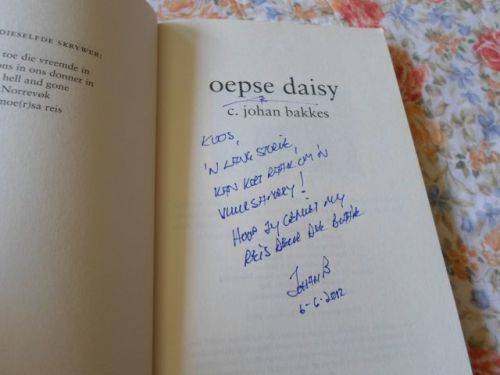 DIESELFDE SKRYWER:
toe die vreemde in
ons in ons donner in
hell and gone
Norrevøk
moe(r)sa reis
oepse daisy
c. johan bakkes
KOOS,
'N LANG STORIE,
KAN KORT RAAK OM 'N
VUUR SAFARY!
HOOP JY GENIET MY
REIS DEUR DIE
JOHAN B
6-6-2012